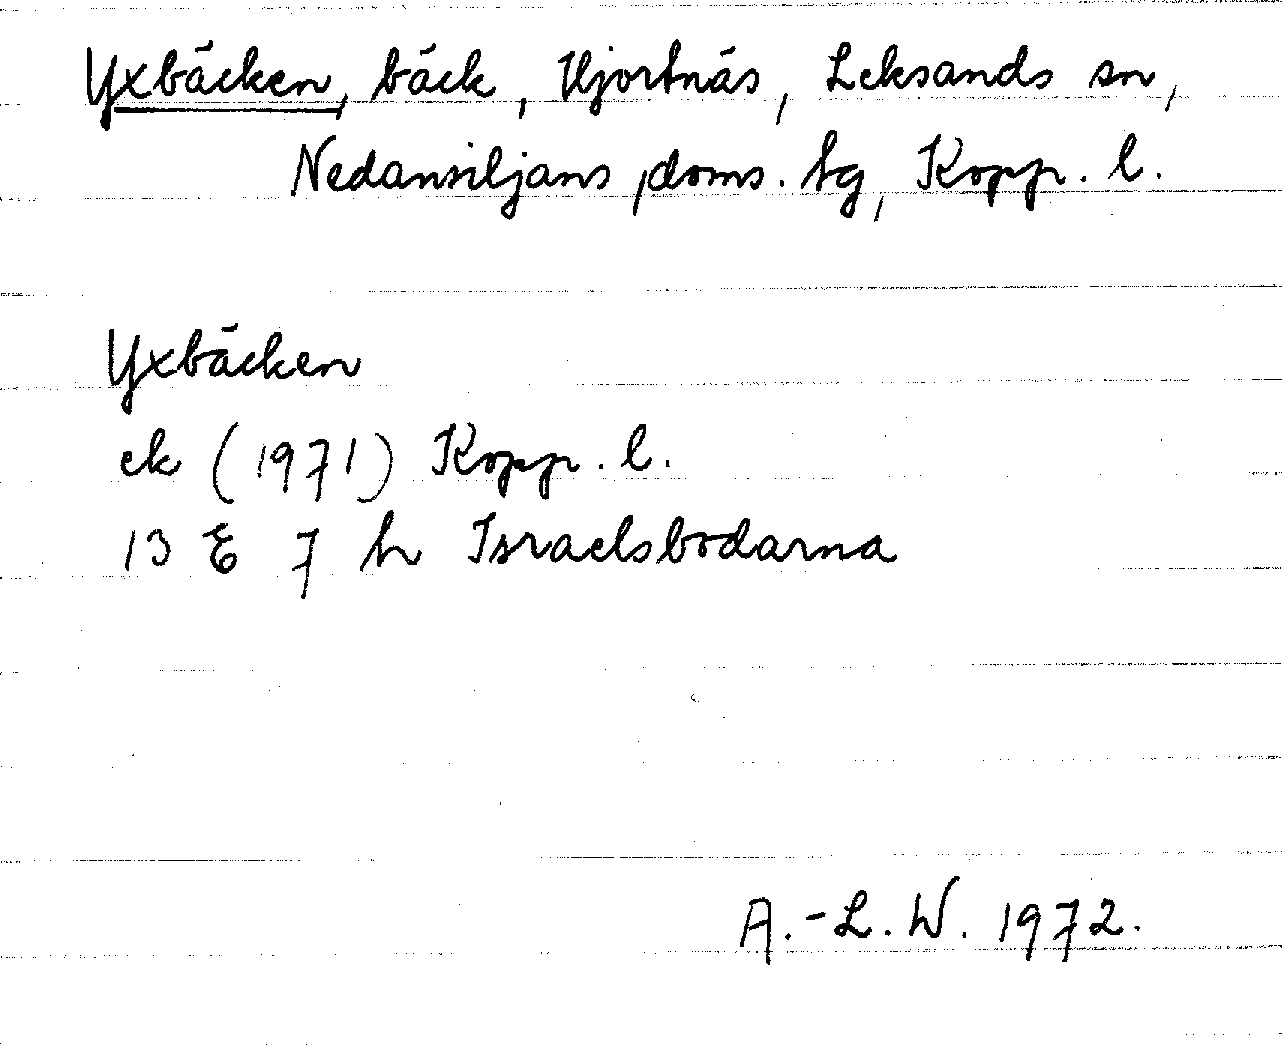 Yxbäcken, bäck, Hjortnäs, Leksands sn,
Nedansiljans doms. tg, Kopp. l.
Yxbäcken
ek (1971) Kopp. l.
13 E 7 h Israelsbodarna
A.-L. W. 1972.